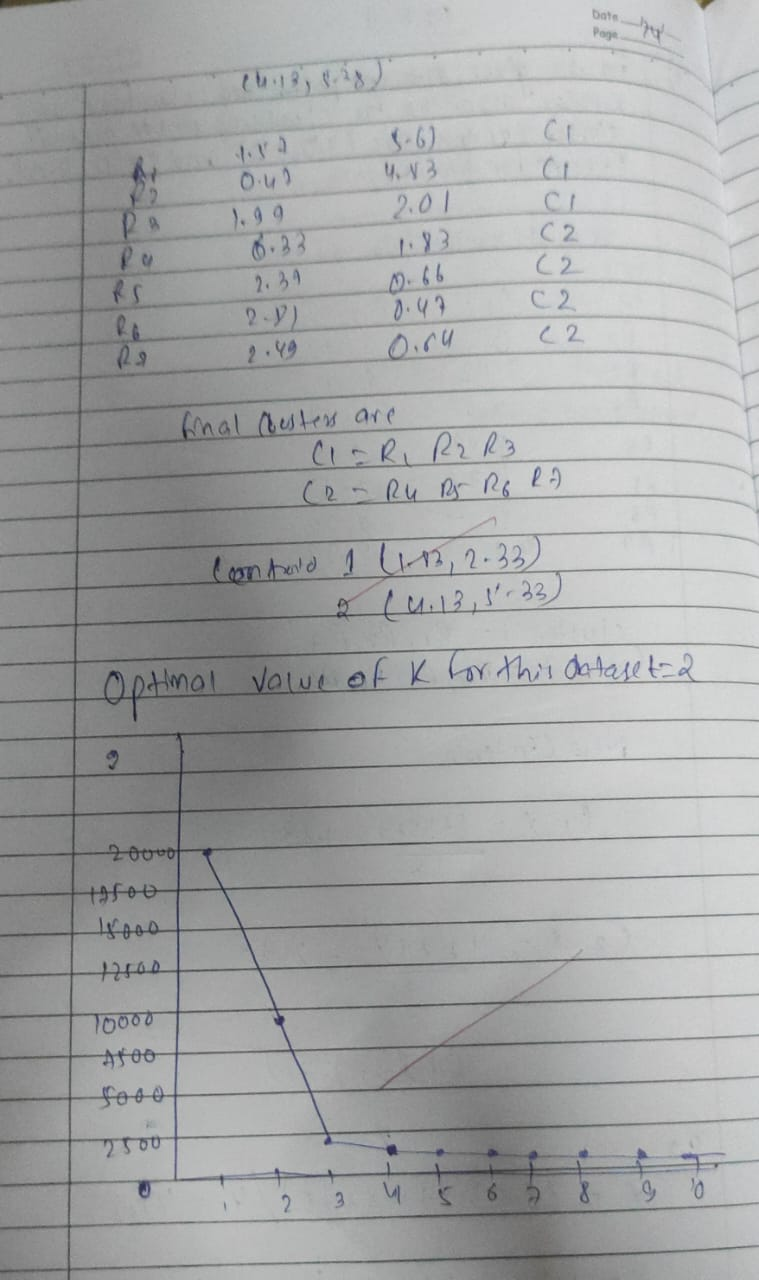 Date
Page
R1 1.57 5.61 C1
R2 0.47 4.83 C1
R3 1.99 2.01 C1
R4 6.33 1.83 C2
R5 2.39 0.66 C2
R6 0.47 C2
2.49 0.64 C2
final clusters are
C1 = R1 R2 R3
C2 = R4 R5 R6 R7
Centroid 1 (1.83, 2.33)
2 (4.13, 5.33)
Optimal value of K for this dataset = 2
20000
17500
15000
12500
10000
7500
5000
2500
0 1 2 3 4 5 6 7 8 9 10